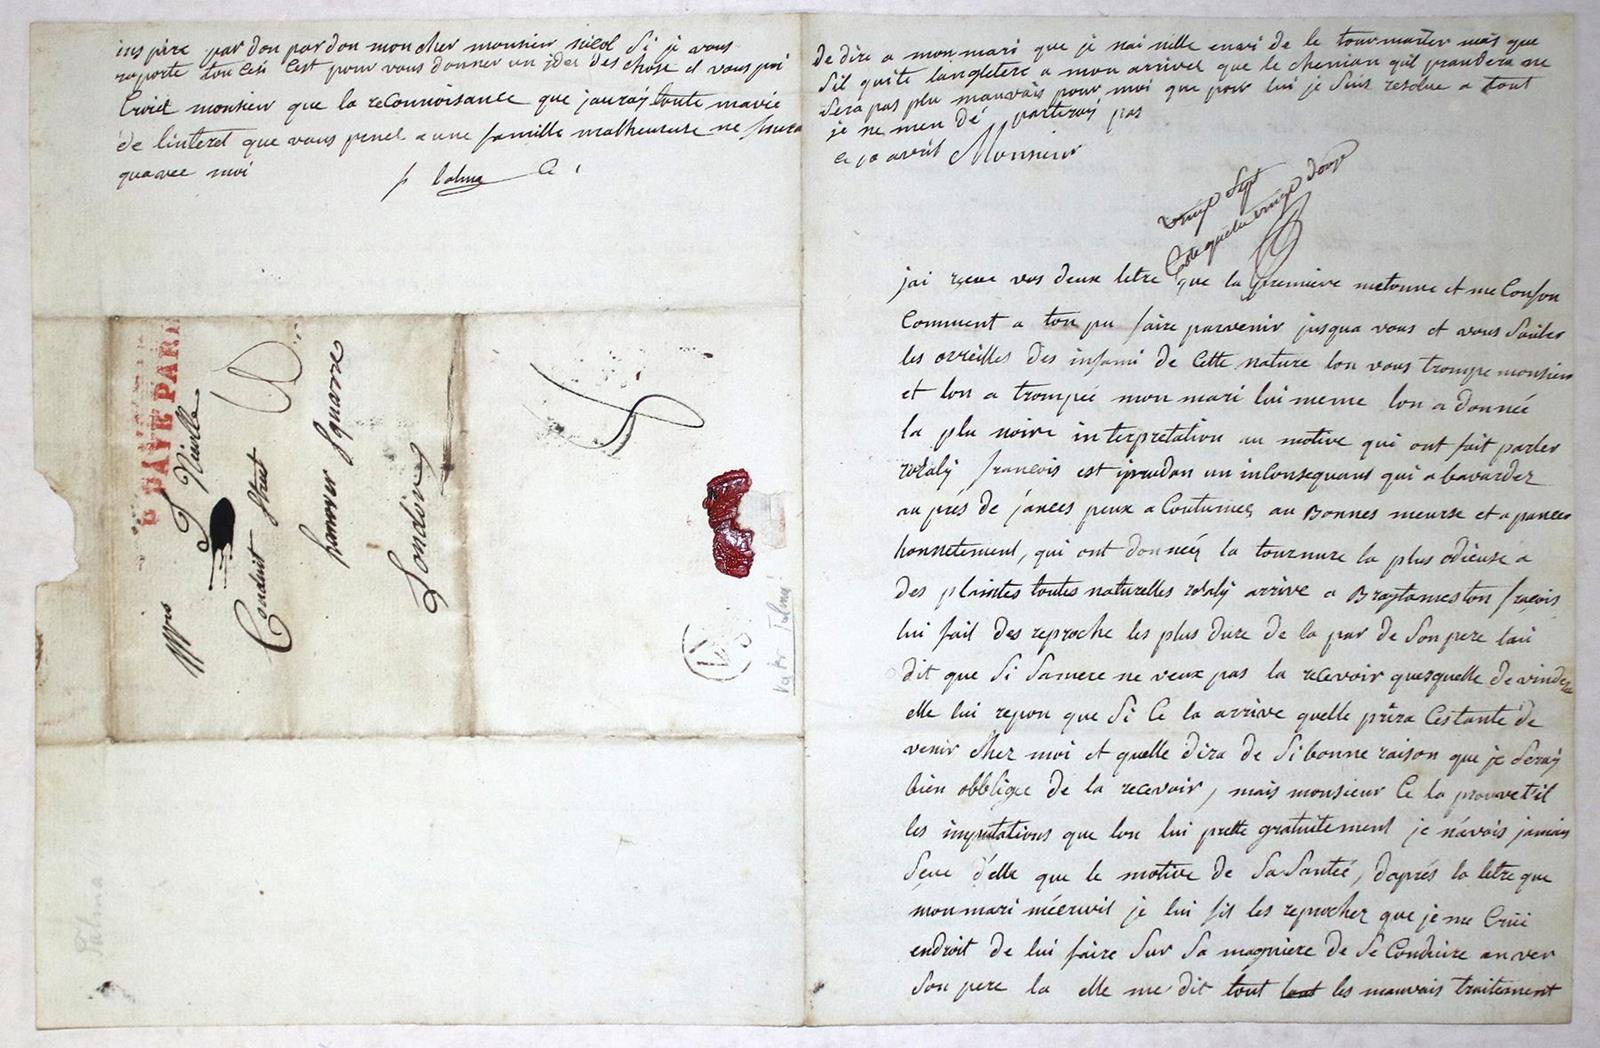 inspire pardon pardon mon cher monsieur nicol Si je vous
raporte tou cesi cest pour vous donner un idee des chose et vous pri
Croiet monsieur que la reconnoisance que jauraÿ toute mavie
de linteret que vous penet a une famille malheureuse ne finira
quavec moi
f talma
P PAYÉ PARIS
Nicolle
Conduit Street
hanover Squarre
London
Talma
de dire a mon mari que je nai nille envi de le tourmanter mais que
Sil quite langletere a mon arrivet que le chemian quil prandera ne
Sera pas plu mauvais pour moi que pour lui je Suis resolue a tout
je ne men dé partiraÿ pas
ce 20 avril Monsieur
vingt Sept
jai reçue vos deux letre que la premiere metonne et me Confon
Comment a ton pu faire parvenir jusqua vous et vous Souiler
les orreilles des infami de Cette nature lon vous trompe monsieur
et lon a trompée mon mari lui meme lon a donnée
la plu noire interpretation au motive qui ont fait parler
francois est un inConsequant qui a bavarder
au prés de jances peux a Coutumes au Bonnes meurse et a pancer
honnetement, qui ont donneés la tournure la plus odieuse a
des plaintes toutes naturelles arrive a fracois
lui fait des reproche les plus dure de la par de Son pere lui
dit que Si Samere ne veux pas la recevoir quesquelle devindera
elle lui repon que Si Ce la arrive quelle prira Cestante de
venir Cher moi et quelle dira de Si bonne raison que je Seraÿ
bien obbligée de la recevoir, mais monsieur Ce la prouvet'il
les imputations que lon lui prette gratuitement je n'avois jamais
Seue d'elle que le motive de Sa Santée, daprés la letre que
mon mari mécrivit je lui fis les reprocher que je me Crüi
endroit de lui faire Sur Sa magniere de Se Conduire an ver
Son pere la elle me dit tout tout les mauvais traitement